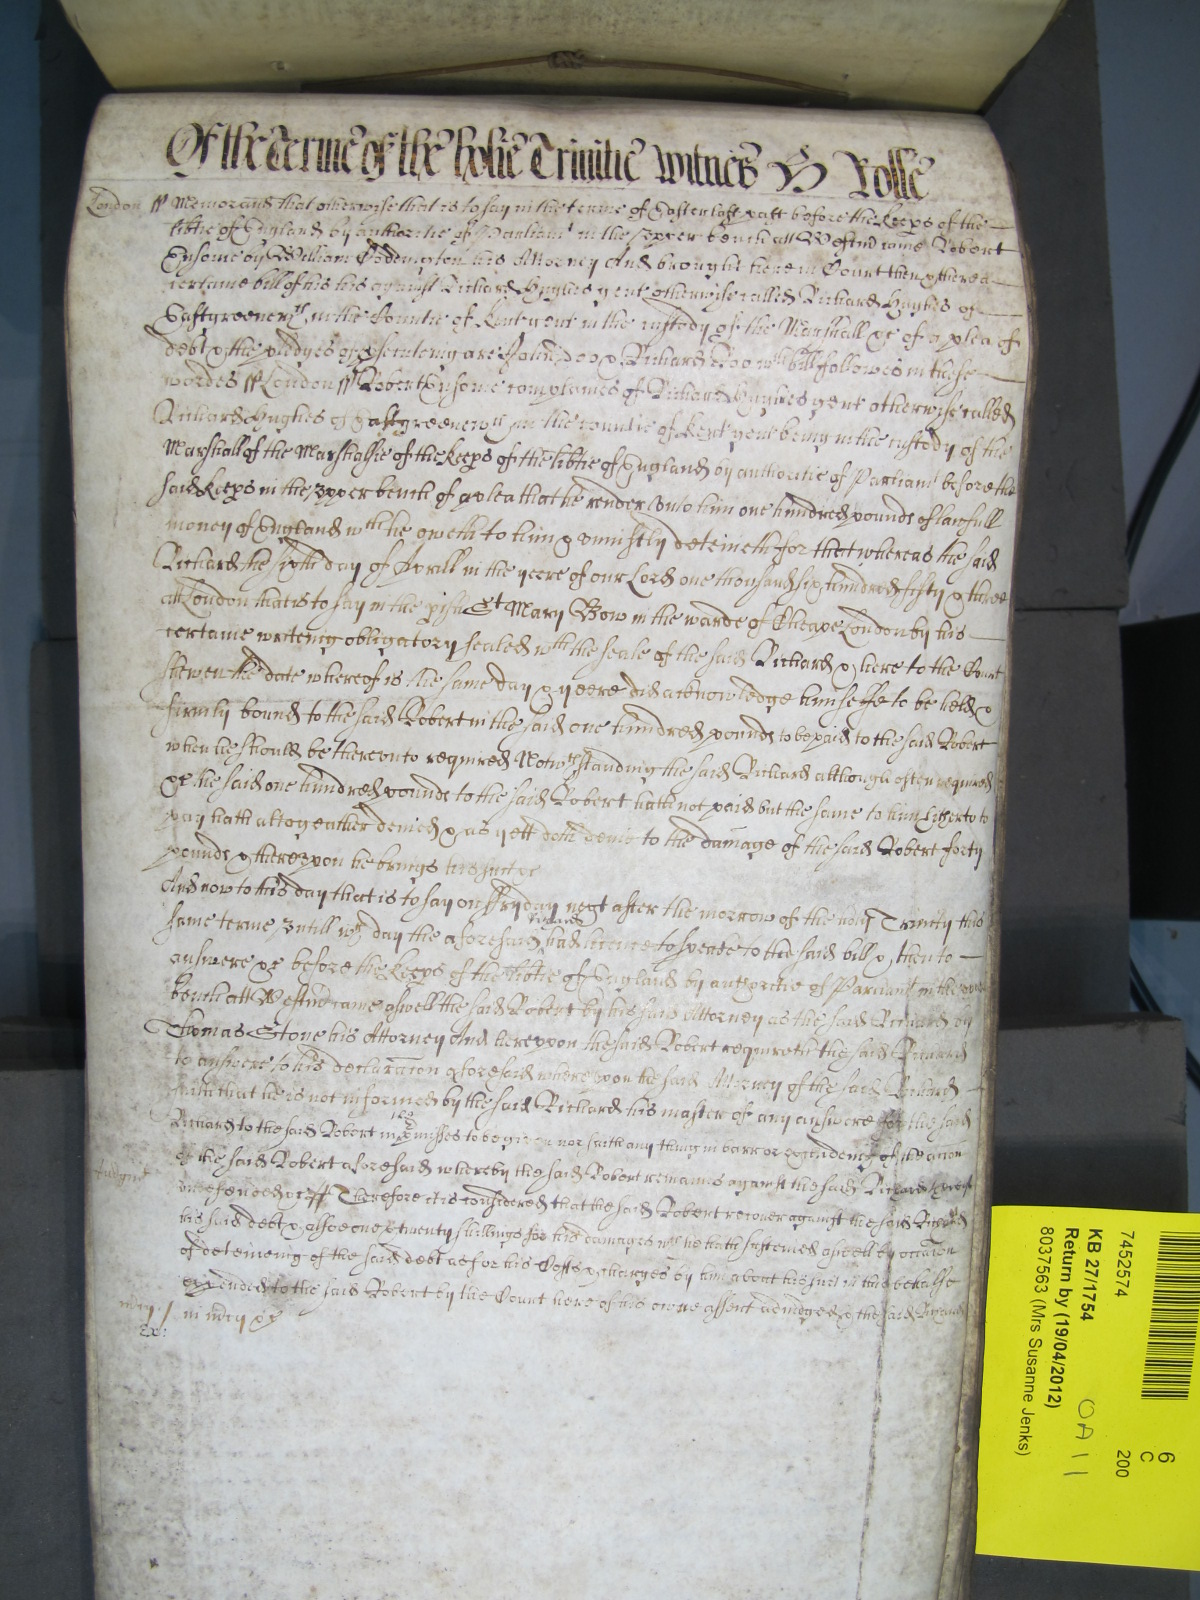 Of the Terme of the holie Trinitie Witnes H Rolle
London ss Memorand that otherwise that is to say in the terme of Easter last past before the Keeps of the
libtie of England by authoritie of Parliamt in the vpper bench att Westmr came Robert
Ensome by William his Attorney And brought here in Court then & there a
certaine bill of his against Richard Hughes gent otherwise called Richard Hughes of
Eastgreenewch in the Countie of Kent gent in the custody of the Marshall &c of a plea of
debt & the pledges of psecuteing are John Doo & Richard Roo wch bill followes in these
wordes ss London ss Robert Ensome complaines of Richard Hughes gent otherwise called
Richard Hughes of Eastgreenewch in the countie of Kent gent being in the custody of the
Marshall of the Marshalsie of the Keeps of the libtie of England by authoritie of Parliamt before the
said Keeps in the vpper bench of a plea that he render vnto him one hundred pounds of lawfull
money of England wch he oweth to him & vniustly deteineth for that whereas the said
Richard the sixth day of Aprill in the yeere of our Lord one thousand six hundred fifty & three
att London that is to say in the pish St Mary Bow in the warde of Cheape London by his
certaine writeing obligatory sealed wth the seale of the said Richard & here to the Court
shewen the date whereof is the same day & yeere did acknowledge himselfe to be held &
firmly bound to the said Robert in the said one hundred pounds to be paid to the said Robert
when he should be therevnto required Notwthstanding the said Richard although often required
&c the said one hundred pounds to the said Robert hath not paid but the same to him hitherto to
pay hath altogeather denied & as yett doth denie to the damage of the said Robert forty
pounds & therevpon he brings his suit &c
And now to this day that is to say on Fryday next after the morrow of the holy Trinity this
same terme vntill wch day the aforesaid Richard had licence to speake to the said bill & then to
answere &c before the Keeps of the libtie of England by authoritie of Parliamt in the vpper
bench att Westmr came aswell the said Robert by his said Attorney as the said Richard by
Thomas Stone his Attorney And herevpon the said Robert requireth the said Richard
to answere to his declaracon aforesaid wherevpon the said Attorney of the said Richard
saith that he is not informed by the said Richard his master of any answere for the said
Richard to the said Robert in the pmisses to be given nor saith any thing in barr or of the accon
of the said Robert aforesaid whereby the said Robert remaines against the said Richard
vndefended &c ss Therefore it is considered that the said Robert recover against the said Richard
Iudgmt
his said debt & also one & twenty shillings for his damages wch he hath susteined aswell by occacon
of deteineing of the said debt as for his Costs & charges by him about his suit in this behalfe
expended to the said Robert by the Court here of his owne assent adiudged & the said Richard
in mcy &c
7452574
KB 27/1754
Return by (19/04/2012)
8037563 (Mrs Susanne Jenks)
6
C
200
OA 11